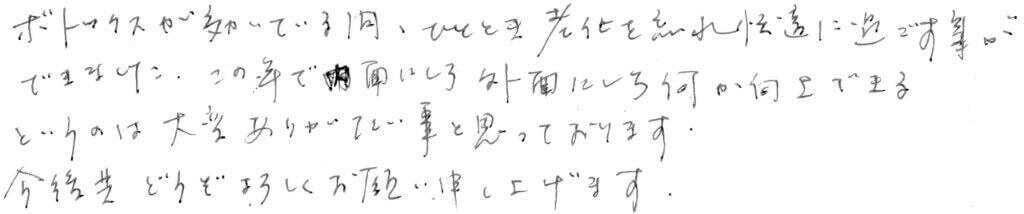 ボトックスが効いている間、ひととき老化を忘れ快適に過ごす事が
できました。この年で内面にしろ外面にしろ何か向上できる
というのは大変ありがたい事と思っております。
今後共どうぞよろしくお願い申し上げます。